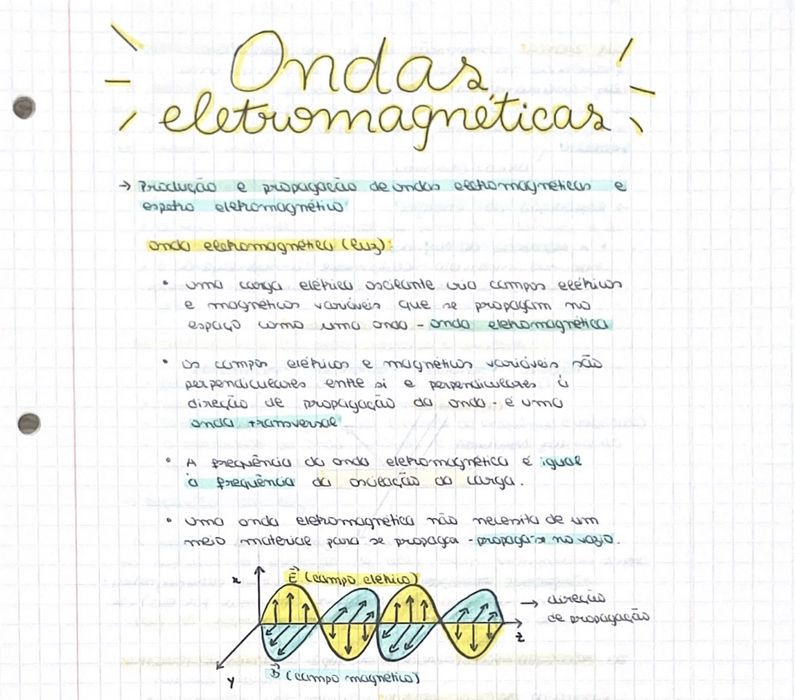 Ondas
eletromagnéticas
→ Produção e propagação de ondas eletromagnéticas e
espetro eletromagnético
onda eletromagnética (luz):
• uma carga elétrica oscilante cria campos elétricos
e magnéticos variáveis que se propagam no
espaço como uma onda - onda eletromagnética
• os campos elétricos e magnéticos variáveis são
perpendiculares entre si e perpendiculares à
direção de propagação da onda - é uma
onda transversal
• A frequência da onda eletromagnética é igual
à frequência da oscilação da carga.
• uma onda eletromagnética não necessita de um
meio material para se propagar - propaga-se no vazio.
x
E⃗ (campo elétrico)
→ direção
de propagação
z
y
B⃗ (campo magnético)